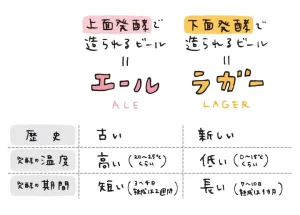 上面発酵で
造られるビール
=
エール
ALE
下面発酵で
造られるビール
=
ラガー
LAGER
歴史 古い 新しい
発酵の温度 高い (20~25℃くらい) 低い (0~15℃くらい)
発酵の期間 短い (3~4日 熟成は2週間) 長い (7~10日 熟成は1ヵ月)